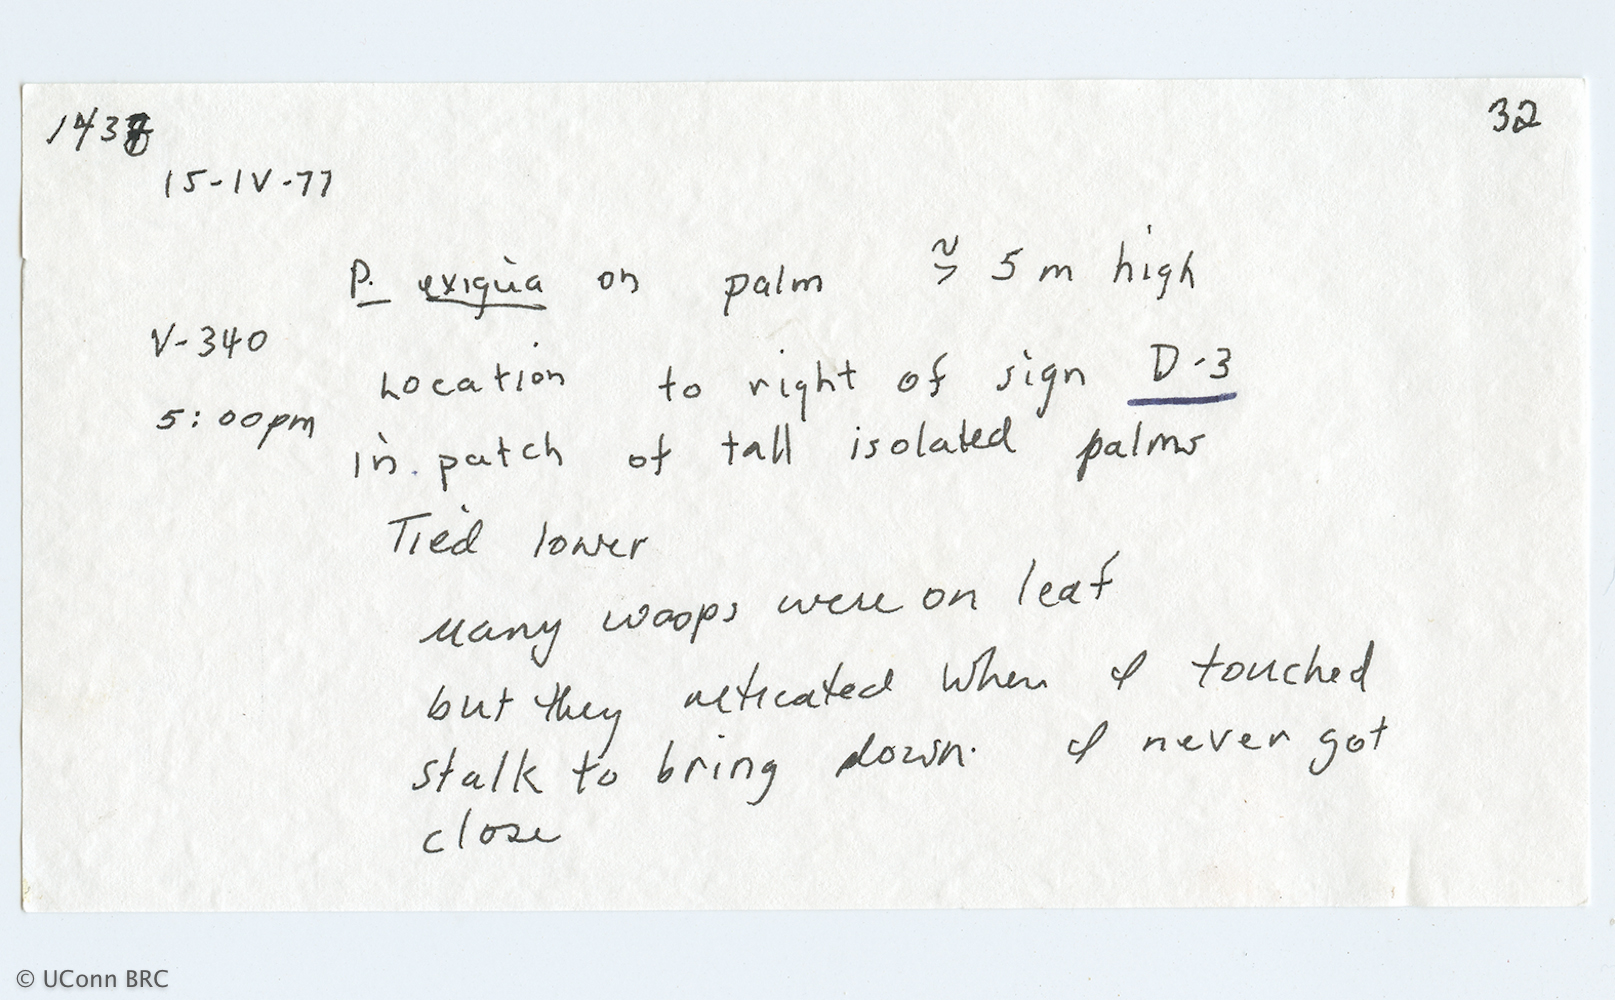 143 32
15-IV-77
P. exigua on palm ≳ 5 m high
V-340
Location to right of sign D-3
5:00pm
in patch of tall isolated palms
Tied lower
Many wasps were on leaf
but they reticated when I touched
stalk to bring down. I never got
close
© UConn BRC